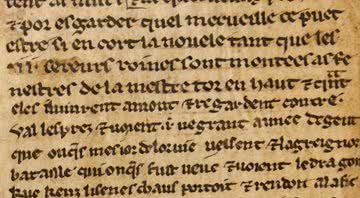 ⁊ por esgarder quel merveille ce puet
estre si en cort la novele tant que les
.ii. sereurs roines sont montees as fe
nestres de la mestre tor en haut ⁊ qñt
eles vinrent amont ⁊ regardent contre
val les prez ⁊ voient .i. ve grant armee de gent
que onq̃s mes ior de lor vie veissent ⁊ la greignor
bataille qui onq̃s fust veue ⁊ voient le dragon
que kenz li senes chaus portoit ⁊ rendon